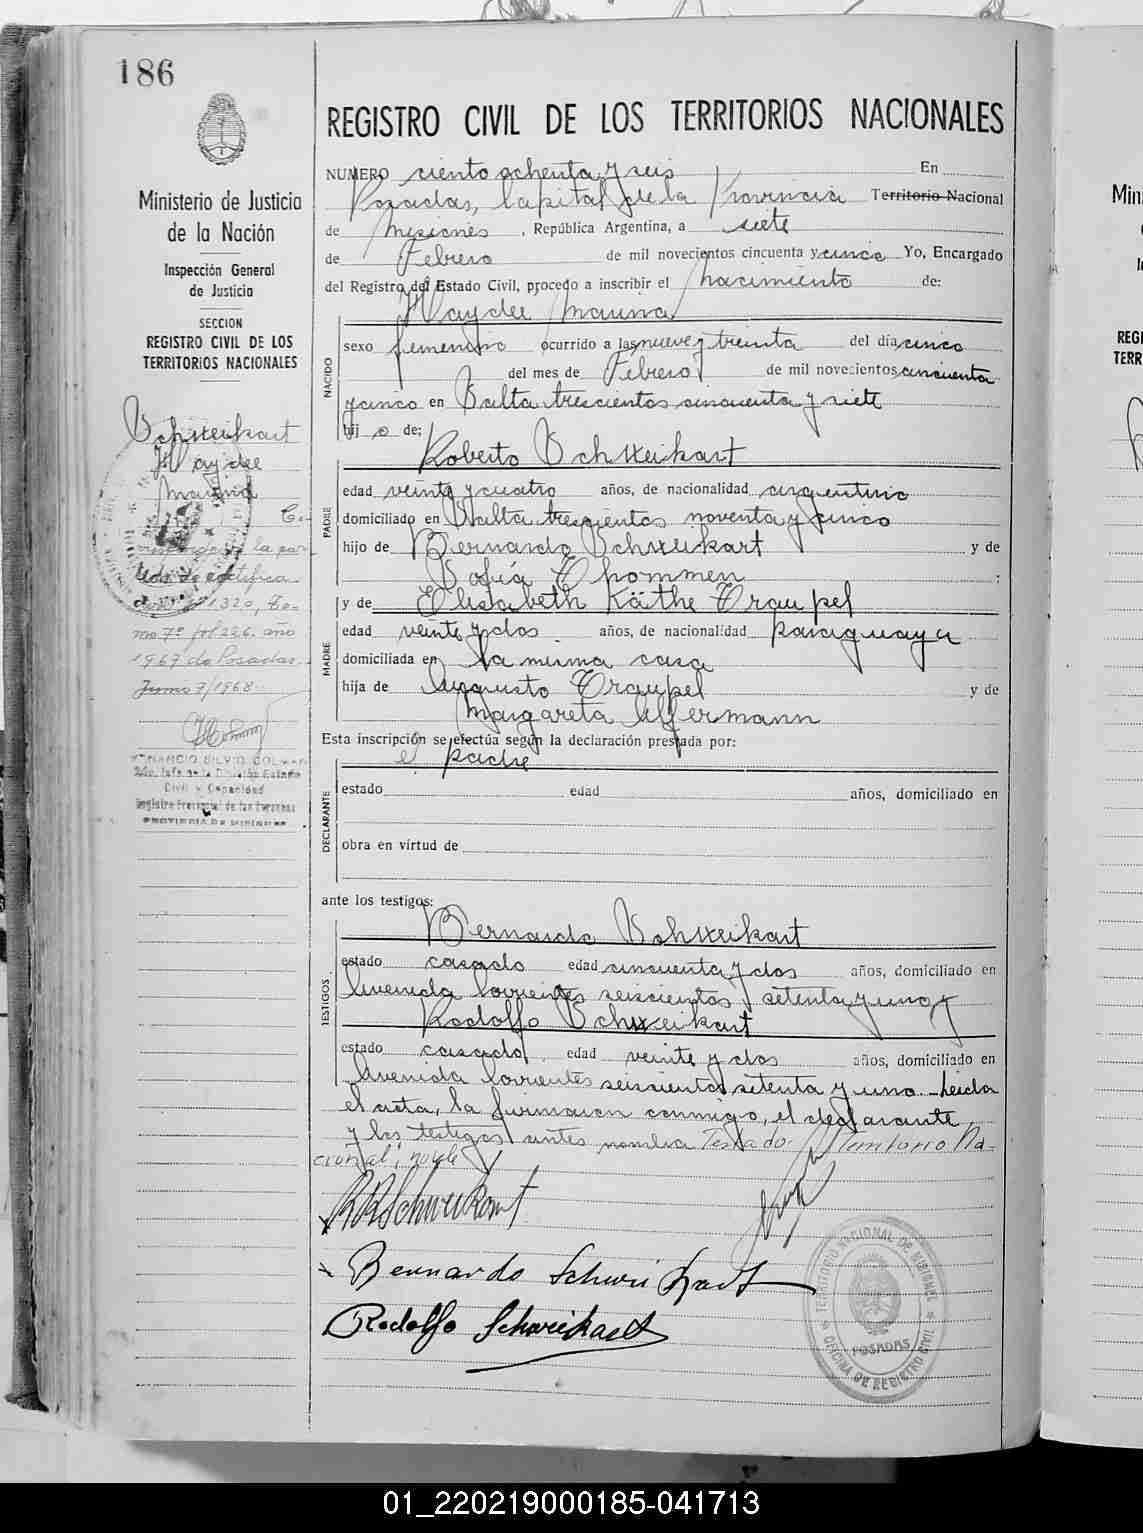 186
Ministerio de Justicia
de la Nación
Inspección General
de Justicia
SECCION
REGISTRO CIVIL DE LOS
TERRITORIOS NACIONALES
Schweikart
Haydee
Marina
Co-
rresponde a la par-
tida de rectifica
1320, To-
mo 7º fol 226. año
1967 de Posadas.
Junio 7/1968
VENANCIO SILVIO COLMAN
2do. Jefe de la División Estado
Civil y Capacidad
Registro Provincial de las Personas
PROVINCIA DE MISIONES
REGISTRO CIVIL DE LOS TERRITORIOS NACIONALES
NUMERO ciento ochenta y seis En
Posadas, Capital de la Provincia Territorio Nacional
de Misiones, República Argentina, a siete
de Febrero de mil novecientos cincuenta y cinco Yo, Encargado
del Registro del Estado Civil, procedo a inscribir el nacimiento de:
Haydee Marina
NACIDO
sexo femenino ocurrido a las nueve y treinta del día cinco
del mes de Febrero de mil novecientos cincuenta
y cinco en Salta trescientos cincuenta y siete
hij a de:
Roberto Schweikart
PADRE
edad veinte y cuatro años, de nacionalidad argentino
domiciliado en Salta trescientos noventa y cinco
hijo de Bernardo Schweikart y de
Sofía Thommen :
y de Elisabeth Käthe Traupel
MADRE
edad veinte y dos años, de nacionalidad paraguaya
domiciliada en la misma casa
hija de Augusto Traupel y de
Margareta Uffermann
Esta inscripción se efectúa según la declaración prestada por:
el padre
DECLARANTE
estado edad años, domiciliado en
obra en virtud de
ante los testigos:
Bernardo Schweikart
TESTIGOS
estado casado edad cincuenta y dos años, domiciliado en
Avenida Corrientes seiscientos setenta y uno y
Rodolfo Schweikart
estado casado edad veinte y dos años, domiciliado en
Avenida Corrientes seiscientos setenta y uno. Leída
el acta, la firmaron conmigo, el declarante
y los testigos antes nombra Testado: Territorio Na-
cional; no vale
RRSchweikart
Bernardo Schweikart
Rodolfo Schweikart
TERRITORIO NACIONAL DE MISIONES
POSADAS
OFICINA DE REGISTRO CIVIL
Min
REGI
TERR
01_220219000185-041713